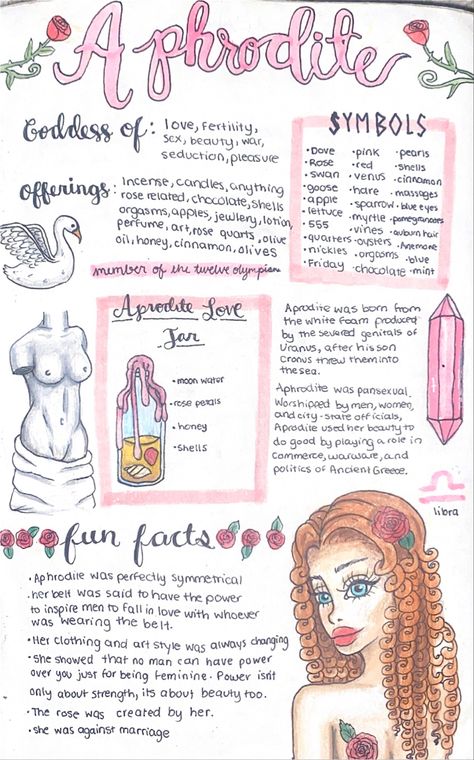 Aphrodite
Goddess of: love, fertility,
sex, beauty, war,
seduction, pleasure
offerings: Incense, candles, anything
rose related, chocolate, shells
orgasms, apples, jewellry, lotion,
perfume, art, rose quarts, olive
oil, honey, cinnamon, olives
member of the twelve olympian
SYMBOLS
• Dove
• Rose
• swan
• goose
• apple
• lettuce
• 555
• quarters
• nickles
• Friday
• pink
• red
• venus
• hare
• sparrow
• myrtle
• vines
• oysters
• orgasms
• chocolate
• pearls
shells
• cinnamon
• massages
• blue eyes
• pomegranates
• auburn hair
• Anemone
• blue
• mint
Aprodite Love
Jar
• moon water
• rose petals
• honey
• shells
Aprodite was born from
the white foam produced
by the severed genitals of
Uranus, after his son
Cronus threw them into
the sea.
Aprodite was pansexual.
Worshipped by men, women,
and city-state officials,
Aprodite used her beauty to
do good by playing a role in
commerce, warware, and
politics of Ancient Greece.
libra
fun facts
• Aphrodite was perfectly symmetrical
• her belt was said to have the power
to inspire men to fall in love with whoever
was wearing the belt.
• Her clothing and art style was always changing
• She showed that no man can have power
over you just for being feminine. Power isn't
only about strength, its about beauty too.
• The rose was created by her.
• she was against marriage